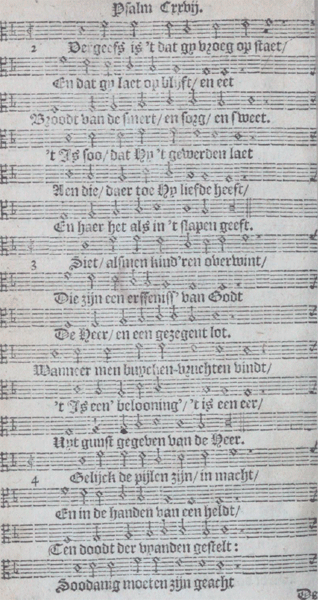 Psalm Cxxvij.
2 Vergeefs is 't dat gy vroeg op staet/
En dat gy laet op blijft/ en eet
Broodt van de smert/ en sorg/ en sweet.
't Is soo/ dat Hy 't gewerden laet
Aen die/ daer toe Hy liefde heeft/
En haer het als in 't slapen geeft.
3 Siet/ alsmen kind'ren overwint/
Die zijn een erffeniss' van Godt
De Heer/ en een gezegent lot.
Wanneer men buycken-vruchten vindt/
't Is een' belooning'/ 't is een eer/
Uyt gunst gegeven van de Heer.
4 Gelijck de pijlen zijn/ in macht/
En in de handen van een heldt/
Ten doodt der vyanden gestelt:
Soodanig moeten zijn geacht